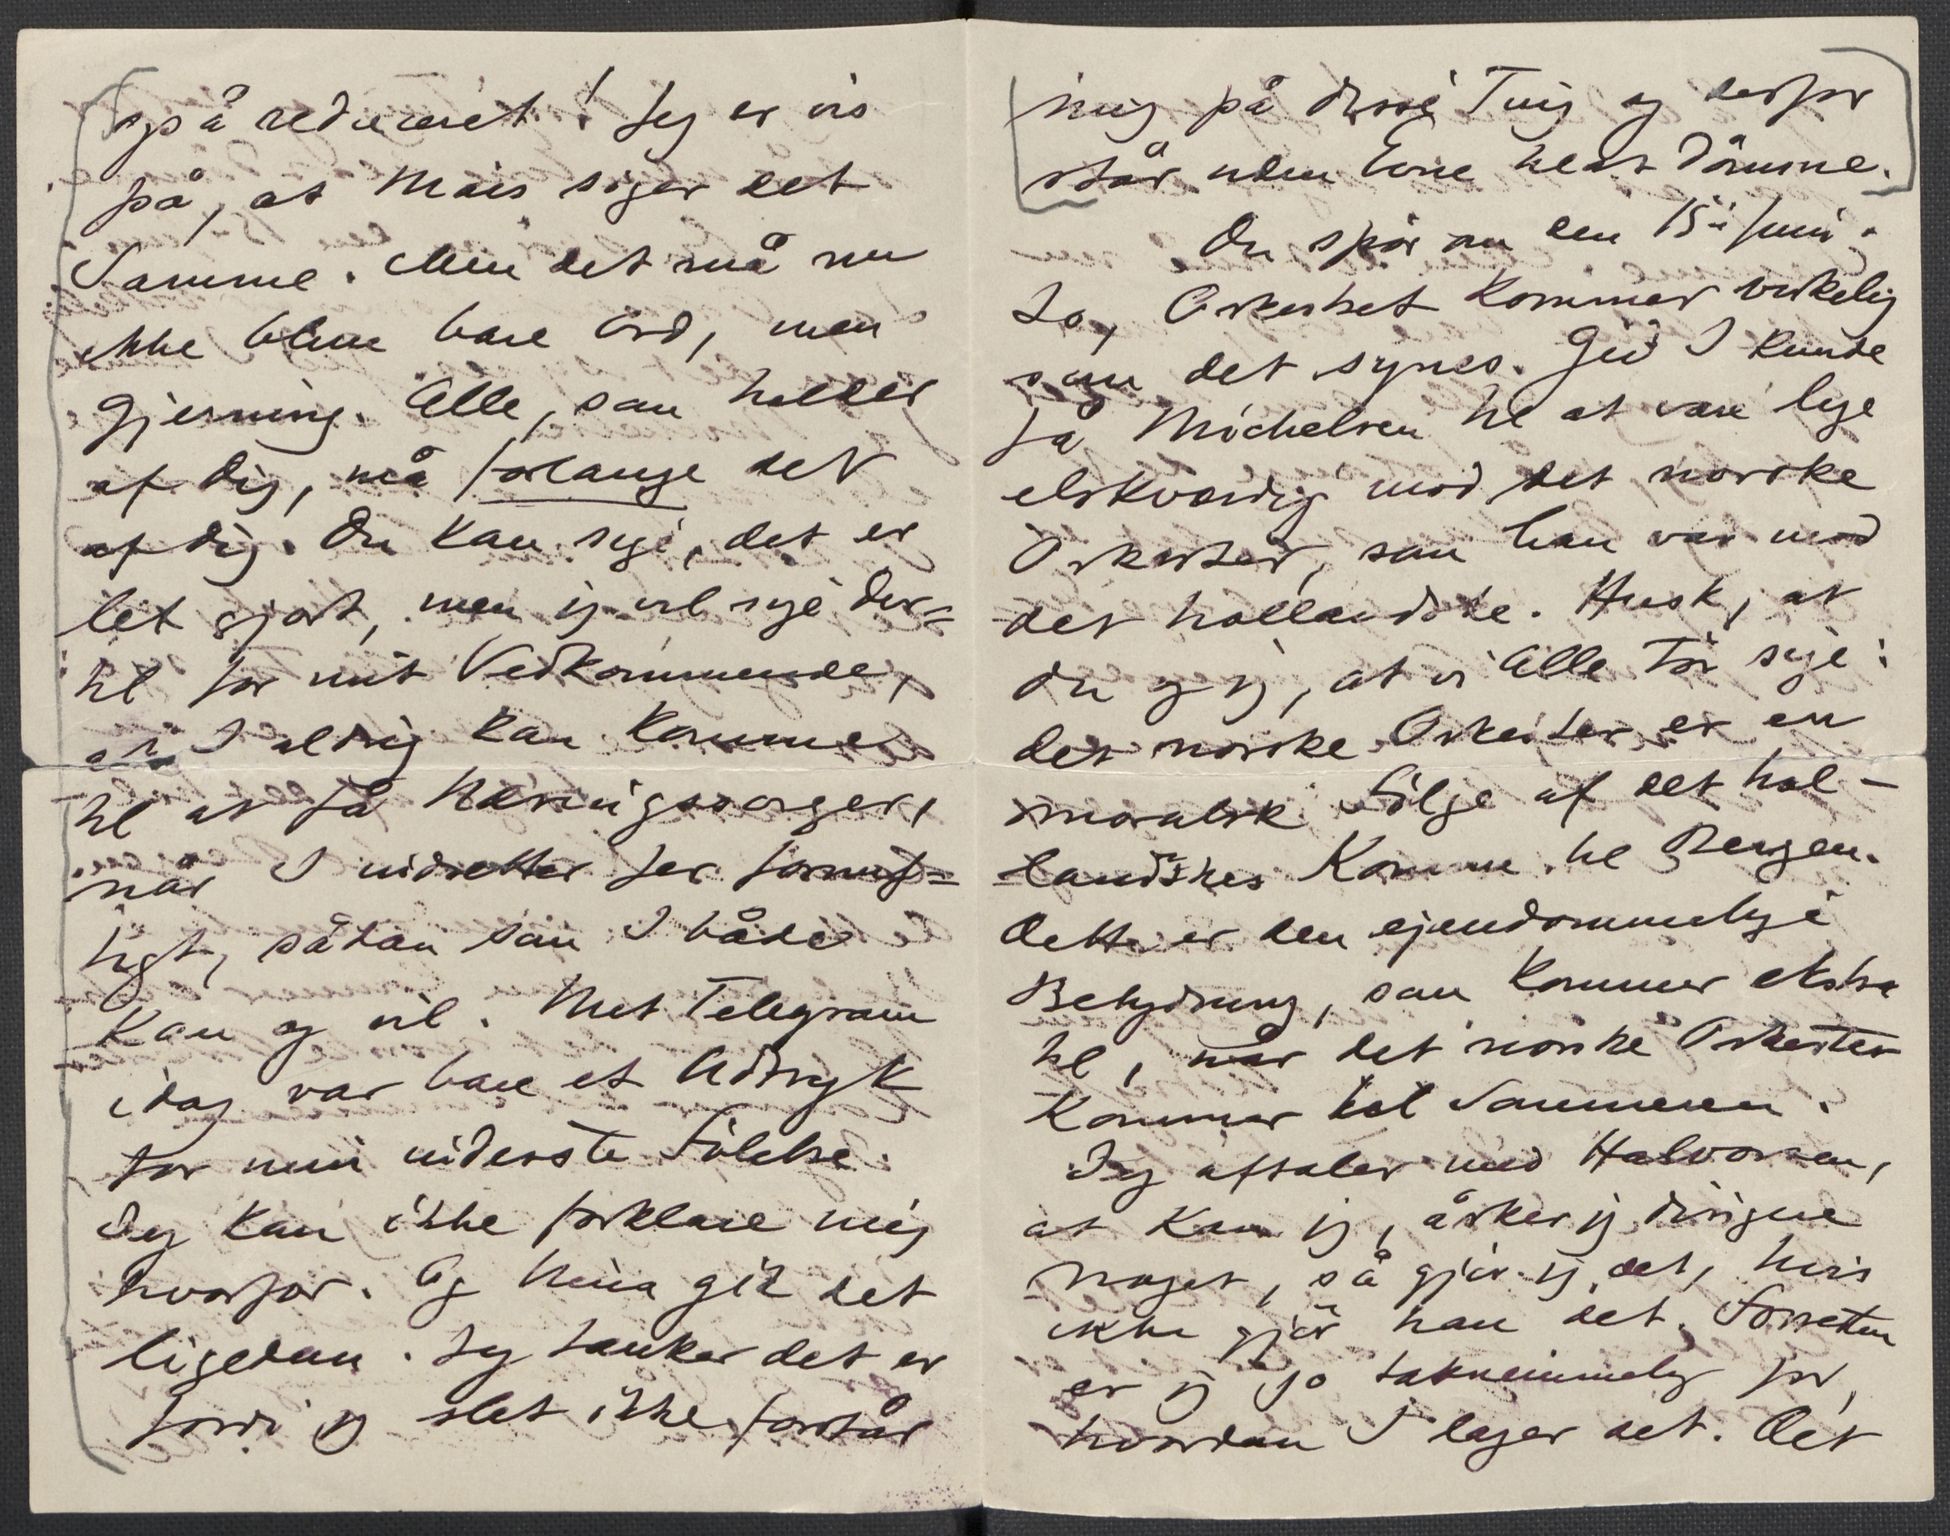 også reduceret! Jeg er vis
på, at Mais siger det
Samme. Men det må nu
ikke blive bare Ord, men
Gjerning. Alle, som holder
af Dig, må forlange det
af Dig. Du kan sige, det er
let gjort, men jeg vil sige der=
til for mit Vedkommende,
at I aldrig kan komme
til at få Næringssorger,
når I indretter Jer fornuf=
tigt, sådan som I både
kan og vil. Mit Telegram
idag var bare et Udtryk
for min inderste Følelse.
Jeg kan ikke forklare mig
hvorfor. Og Nina gik det
ligedan. Jeg tænker det er
fordi jeg slet ikke forstår
mig på disse Ting og derfor
står uden Evne til at dømme.
Du spør om den 15de Juni.
Jo, Orkestret kommer virkelig
som det synes. Gid I kunde
få Michelsen til at være lige
elskværdig mod det norske
Orkester, som han var mod
det hollandske. Husk, at
Du og jeg, at vi Alle tør sige:
det norske Orkester er en
moralsk Følge af det hol-
landskes Komme til Bergen.
Dette er den ejendommelige
Betydning, som kommer ekstra
til, når det norske Orkester
kommer til Sommeren.
Jeg aftaler med Halvorsen,
at kan jeg, årker jeg dirigere
noget, så gjør jeg det, hvis
ikke gjør han det. Forresten
er jeg jo taknemmelig for,
hvordan I lager det. Det